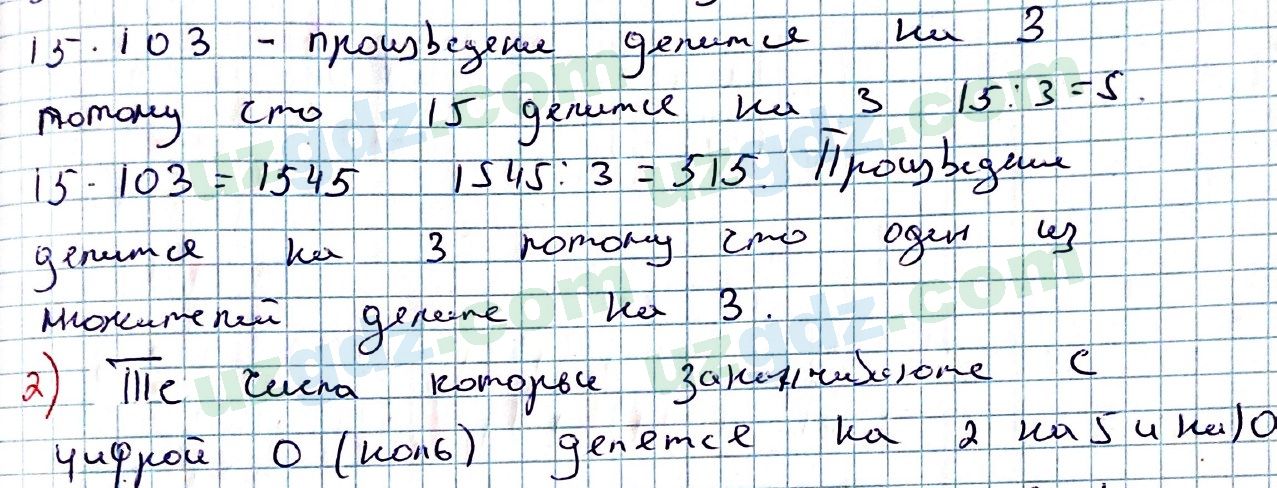 15 · 103 – произведение делится на 3
потому что 15 делится на 3 15 : 3 = 5.
15 · 103 = 1545 1545 : 3 = 515. Произведение
делится на 3 потому что оден из
множителей делите на 3.
2) Те числа которые заканчиваюте с
цифрой 0 (ноль) делется на 2 на 5 и на 10
uzgdz.com uzgdz.com
uzgdz.com uzgdz.com